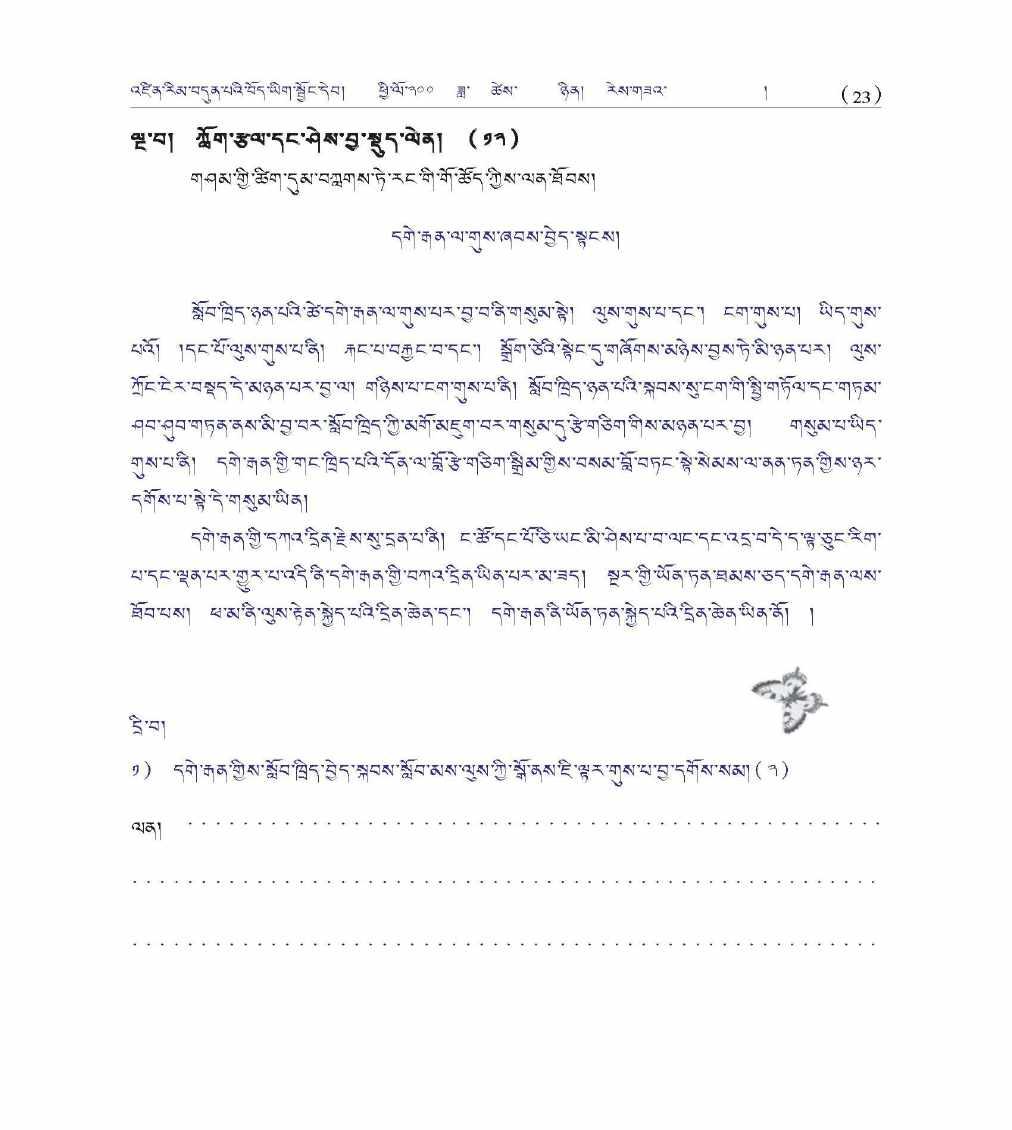 འཛིན་རིམ་བདུན་པའི་བོད་ཡིག་སྦྱོང་དེབ། ཕྱི་ལོ་༢༠༠ ཟླ་ ཚེས་ ཉིན། རེས་གཟའ་ ། (23)
ལྔ་བ། ཀློག་རྩལ་དང་ཤེས་བྱ་སྡུད་ལེན། (༡༢)
གཤམ་གྱི་ཚིག་དུམ་བཀླགས་ཏེ་རང་གི་གོ་ཚོད་ཀྱིས་ལན་ཐོབས།
དགེ་རྒན་ལ་གུས་ཞབས་བྱེད་སྟངས།
སློབ་ཁྲིད་ཉན་པའི་ཚེ་དགེ་རྒན་ལ་གུས་པར་བྱ་བ་ནི་གསུམ་སྟེ། ལུས་གུས་པ་དང་། ངག་གུས་པ། ཡིད་གུས་
པའོ། །དང་པོ་ལུས་གུས་པ་ནི། རྐང་པ་བརྐྱང་བ་དང་། སྒྲོག་ཙེའི་སྟེང་དུ་གཞོགས་མཉེས་བྱས་ཏེ་མི་ཉན་པར། ལུས་
ཀྲོང་ངེར་བསྡད་དེ་མཉན་པར་བྱ་ལ། གཉིས་པ་ངག་གུས་པ་ནི། སློབ་ཁྲིད་ཉན་པའི་སྐབས་སུ་ངག་གི་སྤྱི་གཏོལ་དང་གཏམ་
ཤབ་ཤུབ་གཏན་ནས་མི་བྱ་བར་སློབ་ཁྲིད་ཀྱི་མགོ་མཇུག་བར་གསུམ་དུ་རྩེ་གཅིག་གིས་མཉན་པར་བྱ། གསུམ་པ་ཡིད་
གུས་པ་ནི། དགེ་རྒན་གྱི་གང་ཁྲིད་པའི་དོན་ལ་བློ་རྩེ་གཅིག་སྒྲིམ་གྱིས་བསམ་བློ་བཏང་སྟེ་སེམས་ལ་ནན་ཏན་གྱིས་ཉར་
དགོས་པ་སྟེ་དེ་གསུམ་ཡིན།
དགེ་རྒན་གྱི་དཀའ་དྲིན་རྗེས་སུ་དྲན་པ་ནི། ང་ཚོ་དང་པོ་ཅི་ཡང་མི་ཤེས་པ་བ་ལང་དང་འདྲ་བ་དེ་ད་ལྟ་ཅུང་རིག་
པ་དང་ལྡན་པར་གྱུར་པ་འདི་ནི་དགེ་རྒན་གྱི་བཀའ་དྲིན་ཡིན་པར་མ་ཟད། སྔར་གྱི་ཡོན་ཏན་ཐམས་ཅད་དགེ་རྒན་ལས་
ཐོབ་པས། ཕ་མ་ནི་ལུས་རྟེན་སྐྱེད་པའི་དྲིན་ཆེན་དང་། དགེ་རྒན་ནི་ཡོན་ཏན་སྐྱེད་པའི་དྲིན་ཆེན་ཡིན་ནོ། །
དྲི་བ།
༡) དགེ་རྒན་གྱིས་སློབ་ཁྲིད་བྱེད་སྐབས་སློབ་མས་ལུས་ཀྱི་སྒོ་ནས་ཇི་ལྟར་གུས་པ་བྱ་དགོས་སམ། (༢)
ལན།